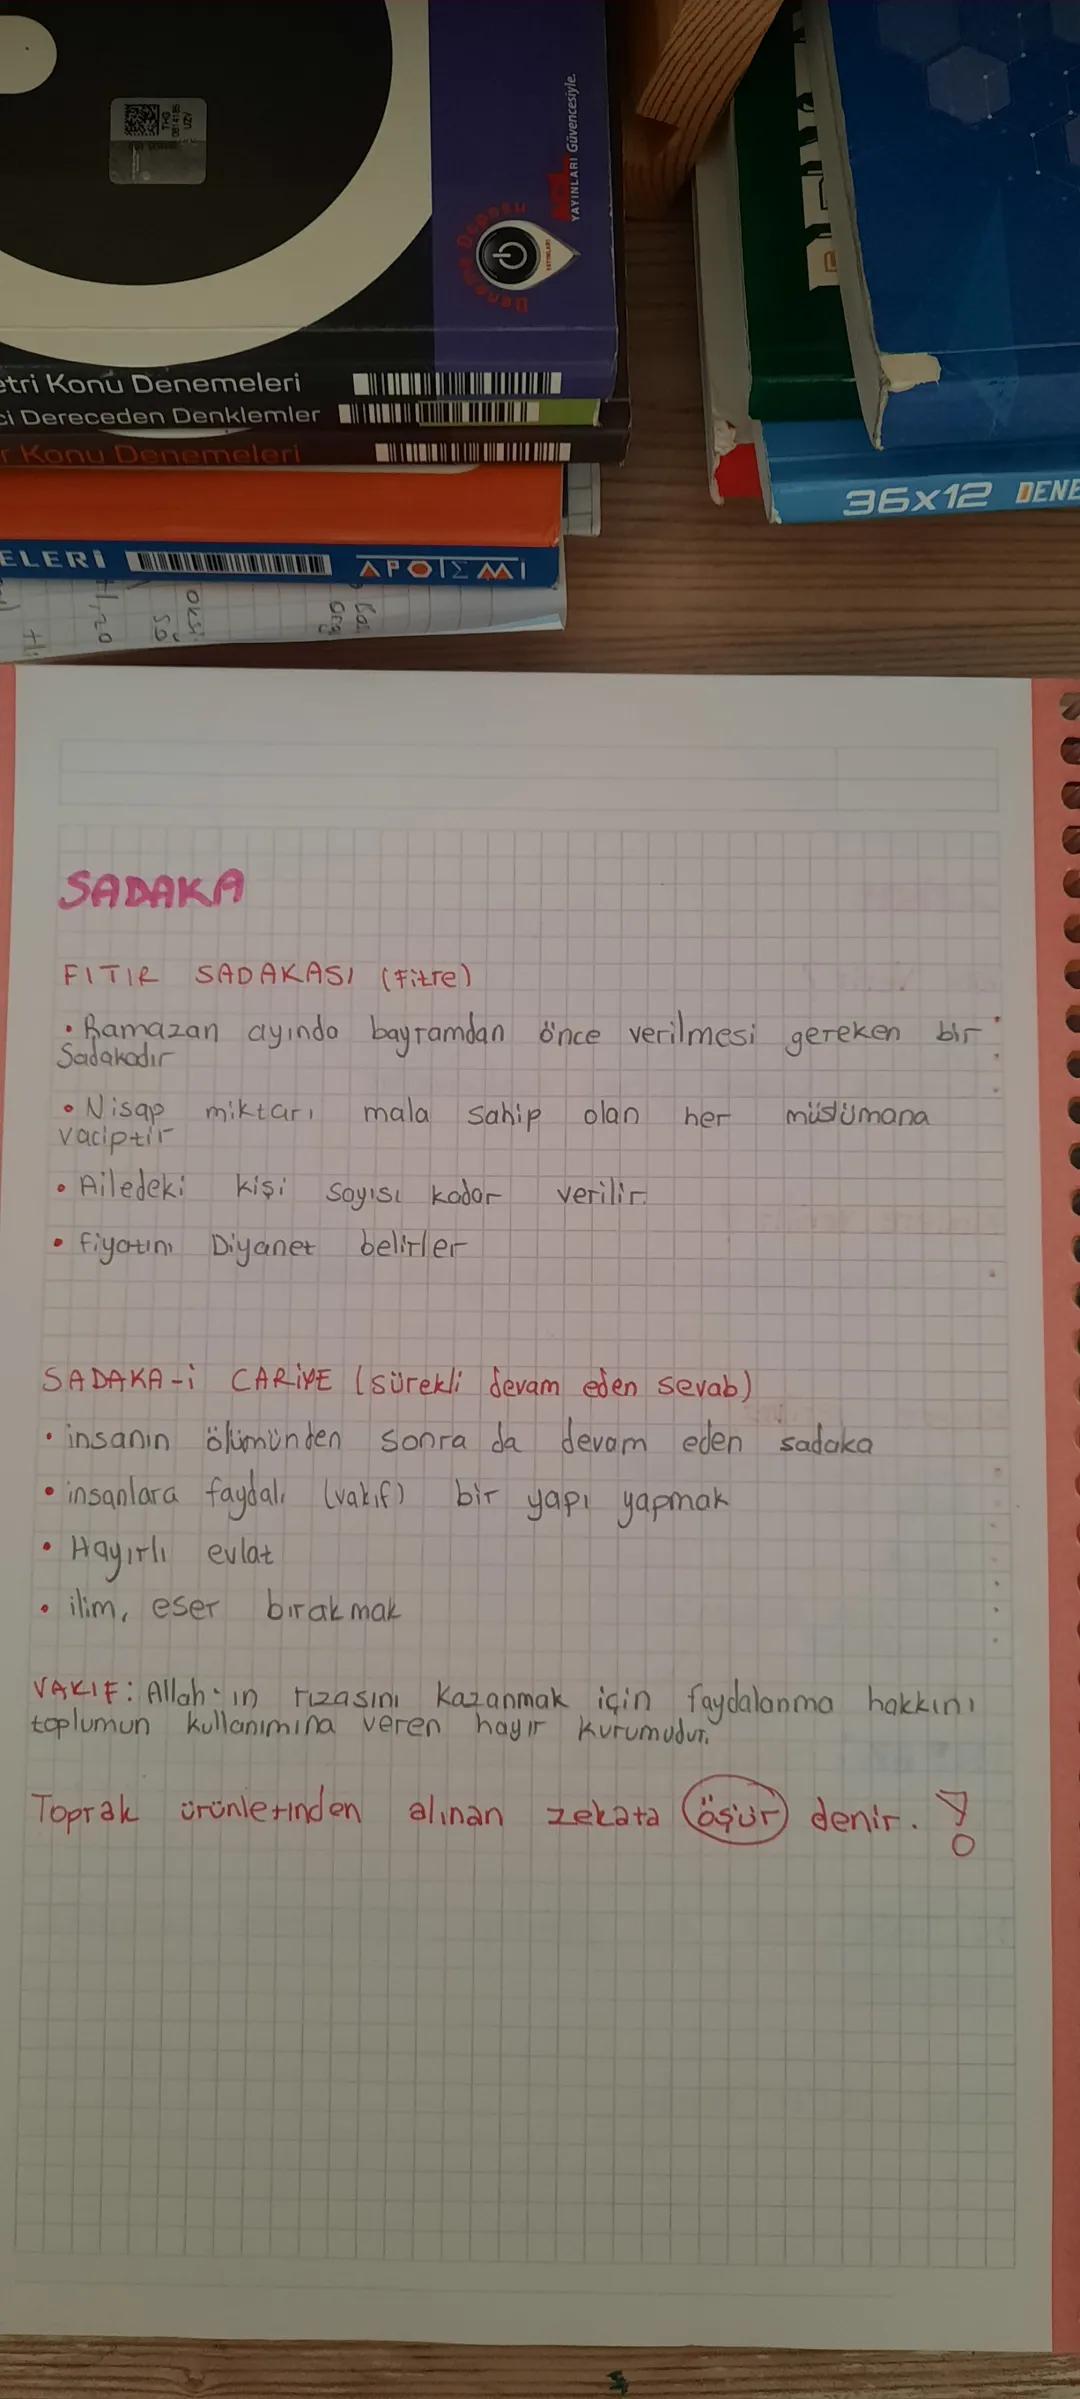 THG
0814185
UZV
YAYINLARI Güvencesiyle.
Deneme Deposu
etri Konu Denemeleri
ci Dereceden Denklemler
r Konu Denemeleri
ELERİ
APOİEMİ
36x12 DENE
SADAKA
FITIR SADAKASI (Fitre)
• Ramazan ayında bayramdan önce verilmesi gereken bir
Sadakadır
• Nisap miktarı mala sahip olan her müslümana
vaciptir
• Ailedeki kişi sayısı kadar verilir.
• fiyatını Diyanet belirler
SADAKA-i CARİYE (sürekli devam eden sevab)
• insanın ölümünden sonra da devam eden sadaka
• insanlara faydalı (vakıf) bir yapı yapmak
• Hayırlı evlat
• ilim, eser bırakmak
VAKIF: Allah'ın rızasını kazanmak için faydalanma hakkını
toplumun kullanımına veren hayır kurumudur.
Toprak ürünlerinden alınan zekata öşür denir. !